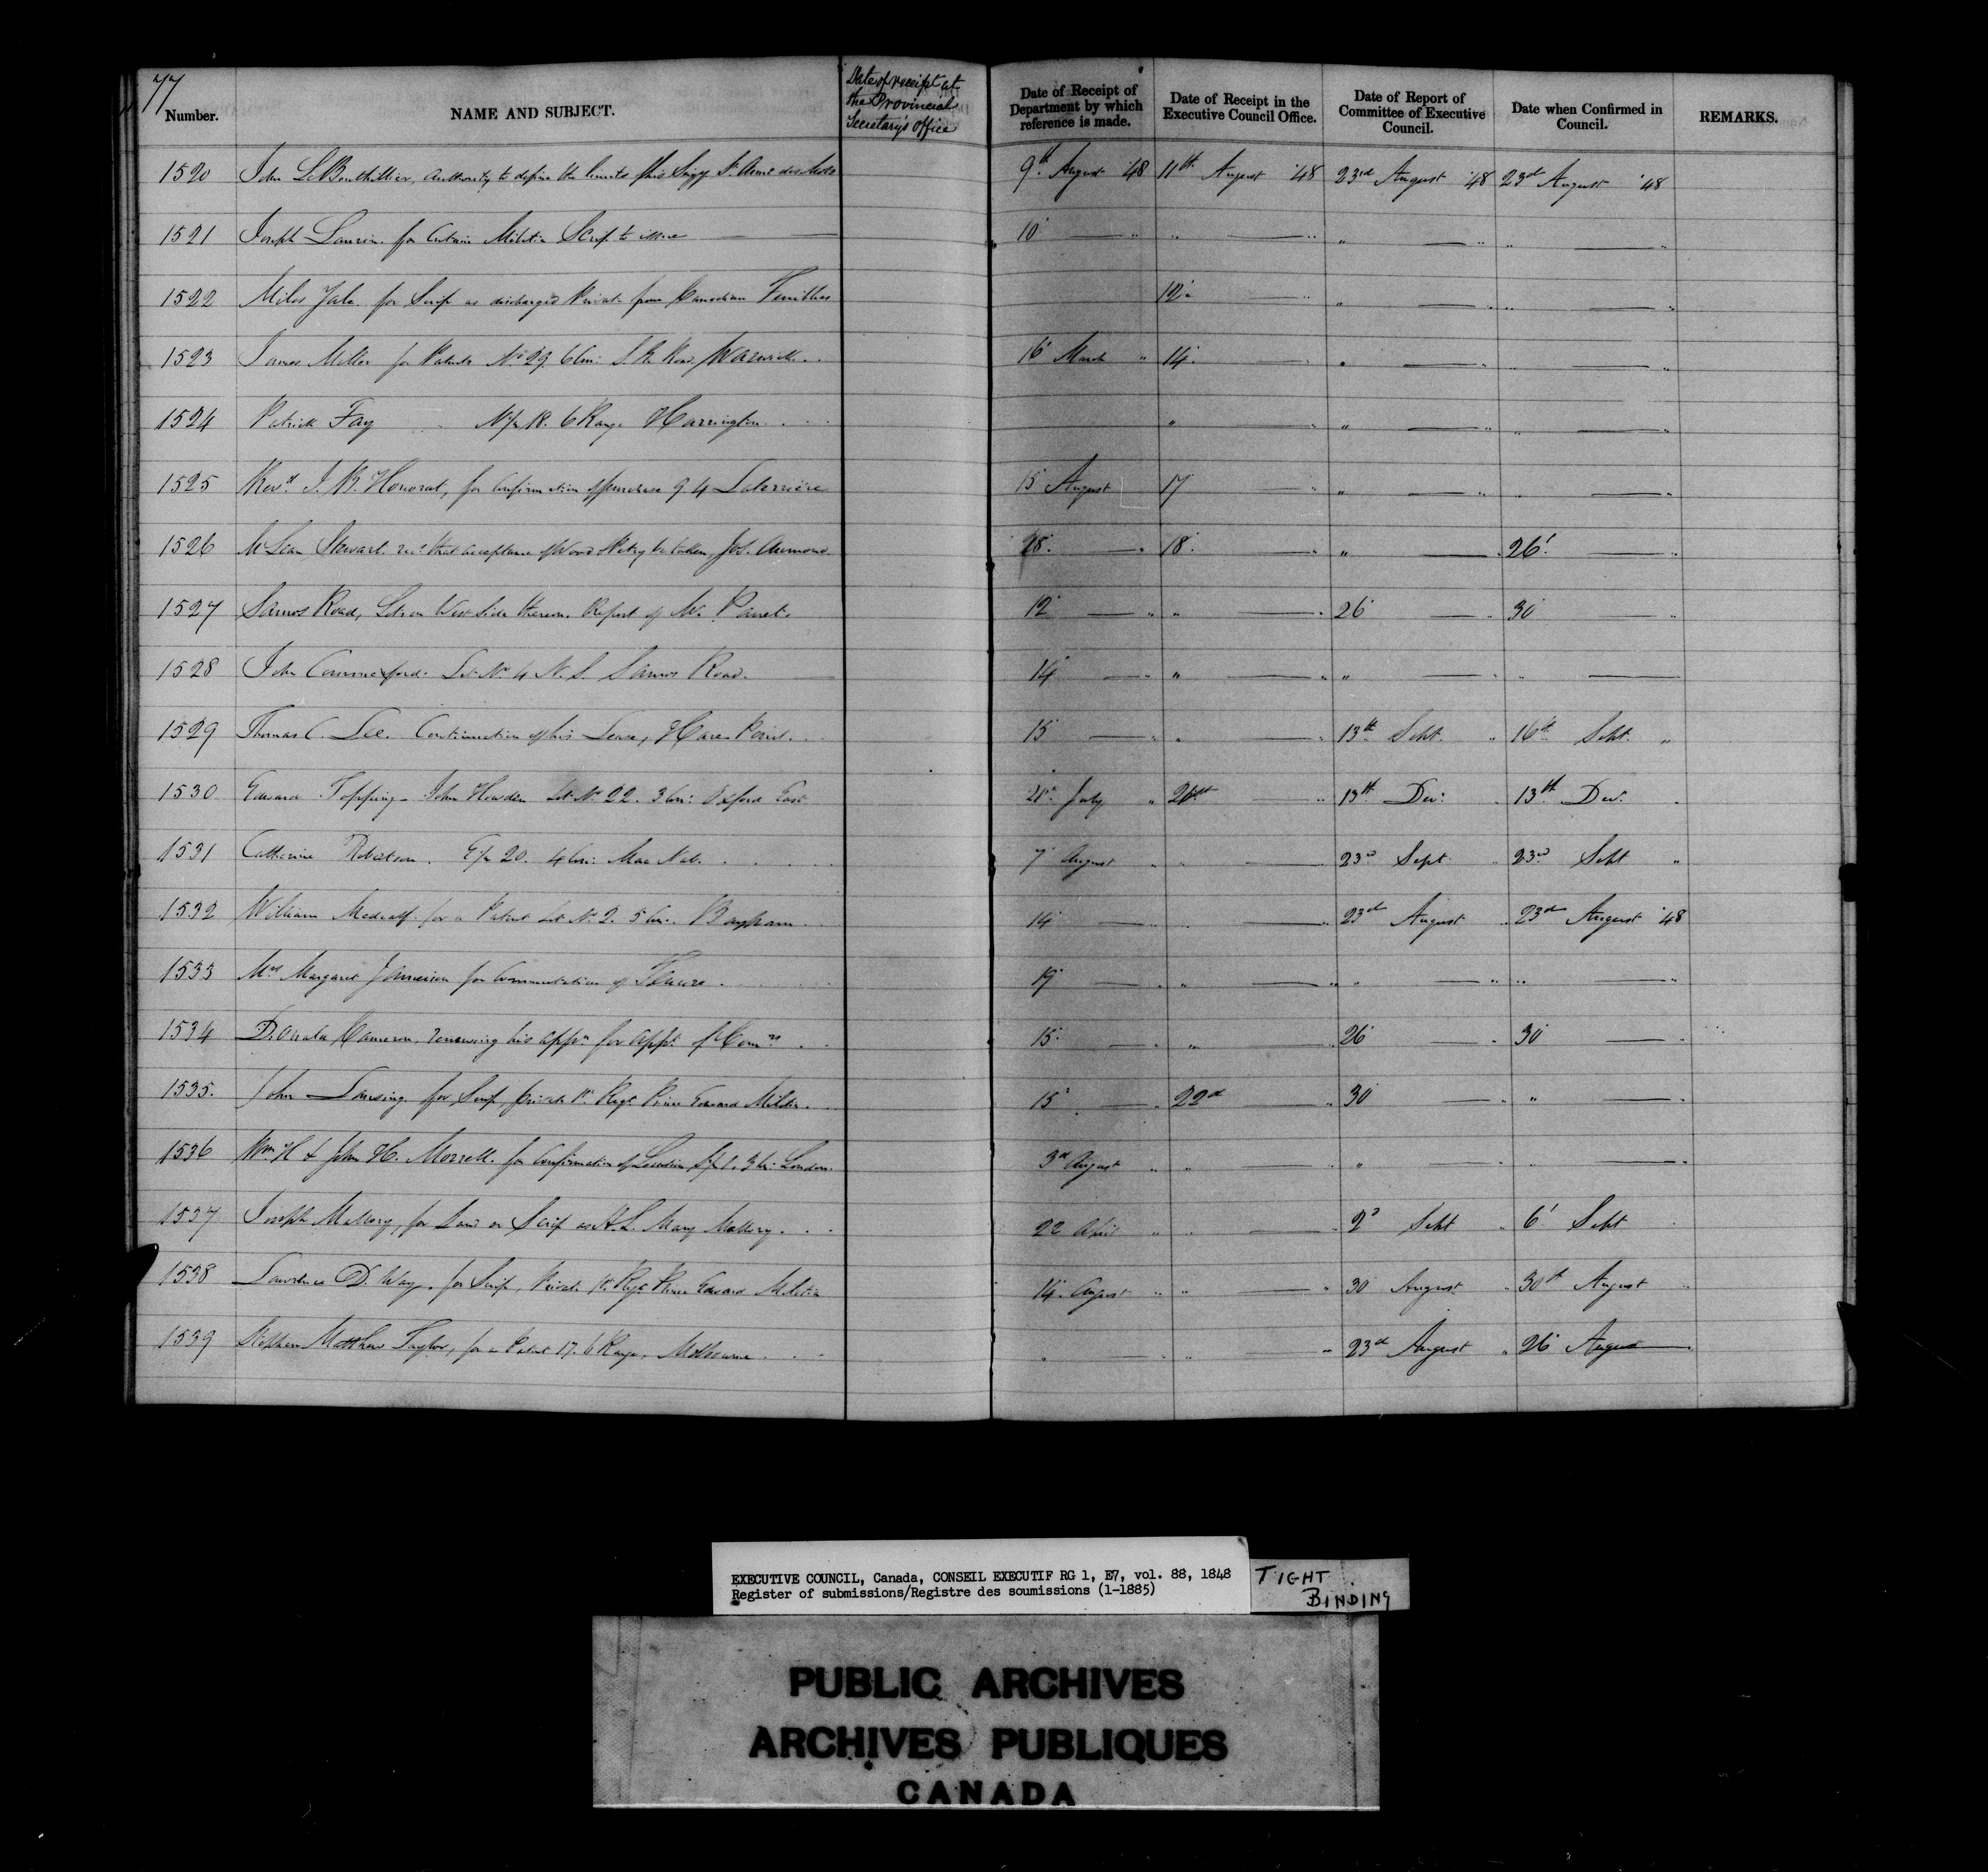 77
Number. NAME AND SUBJECT. Date of receipt at the Provincial Secretary's office Date of Receipt of Department by which reference is made. Date of Receipt in the Executive Council Office. Date of Report of Committee of Executive Council. Date when Confirmed in Council. REMARKS.
1520 John LeBouthillier, authority to define the limits of his Seigy St. Anne des Monts 9th August '48 11th August '48 23rd August '48 23rd August '48
1521 Joseph Laurin for certain Militia Scrip to issue — 10 — " " — " " — " " — "
1522 Miles Yale for Scrip as discharged Private from Canadian Fencibles 12 — " " — " " — "
1523 James Miller for Patent No 29. 6 Con: S. R. Road, Warwick 16 March " 14 — " — " " — "
1524 Patrick Fay " N/2 18. 6 Range Harrington " — " " — " " — "
1525 Revd J. B. Honorat, for confirmation of purchase 9. 4 Laterrière 15 August 17 — " " — " " — "
1526 McLean Stewart that acceptance of Wood be taken, Jos. Aumond 28 — " 18 — " " — " 26 — "
1527 Road, Lots on West Side thereon, Report of Mr. 12 — " " — " 26 — " 30 — "
1528 John Commerford Lot No 4 N. S. Road. 14 — " " — " " — " " —
1529 Thomas C. Lee. Continuation of his Lease, Hares Point. 15 — " " — " 13th Sept. " 16th Sept. "
1530 Edward Topping – John Howden Lot No 22. 3 Con: Oxford East July " — " 13th Decr 13th Decr
1531 Catherine Robertson. E/2 20. 4 Con: MacNab. 7 August " " — 23rd Sept. " 23rd Sept "
1532 William Medcalf for a Patent Lot No 2. 5 Con. Bayham 14 — " " — " 23rd August " 23rd August '48
1533 Mrs Margaret Jameison for Commutation of Tenure. 19 — " " — " " — " " — "
1534 Donald Cameron, renewing his appn for appt of Comrs 15 — " " — " 26 — " 30 — "
1535. John Lansing for Scrip, private 1st Regt Prince Edward Militia. 15 — " 22d " 30 — " " — "
1536 Wm H & John H. Morrell. for Confirmation of Location 1. 3 Con: London. 3d August " " — " " — " " — "
1537 Joseph Mallory, for Land or Scrip as H.L. Mary Mallory. 22 April " " — " 2d Sept " 6 Sept
1538 Lawrence D. Way. for Scrip, Private 1st Regt Prince Edward Militia 14 August " " — " 30 August " 30th August "
1539 Stephen Matthew Taylor, for a Patent 17. 6 Range, Melbourne " — " " — " 23d August " 26 August
EXECUTIVE COUNCIL, Canada, CONSEIL EXECUTIF RG 1, E7, vol. 88, 1848
Register of submissions/Registre des soumissions (1-1885)
TIGHT
BINDING
PUBLIC ARCHIVES
ARCHIVES PUBLIQUES
CANADA